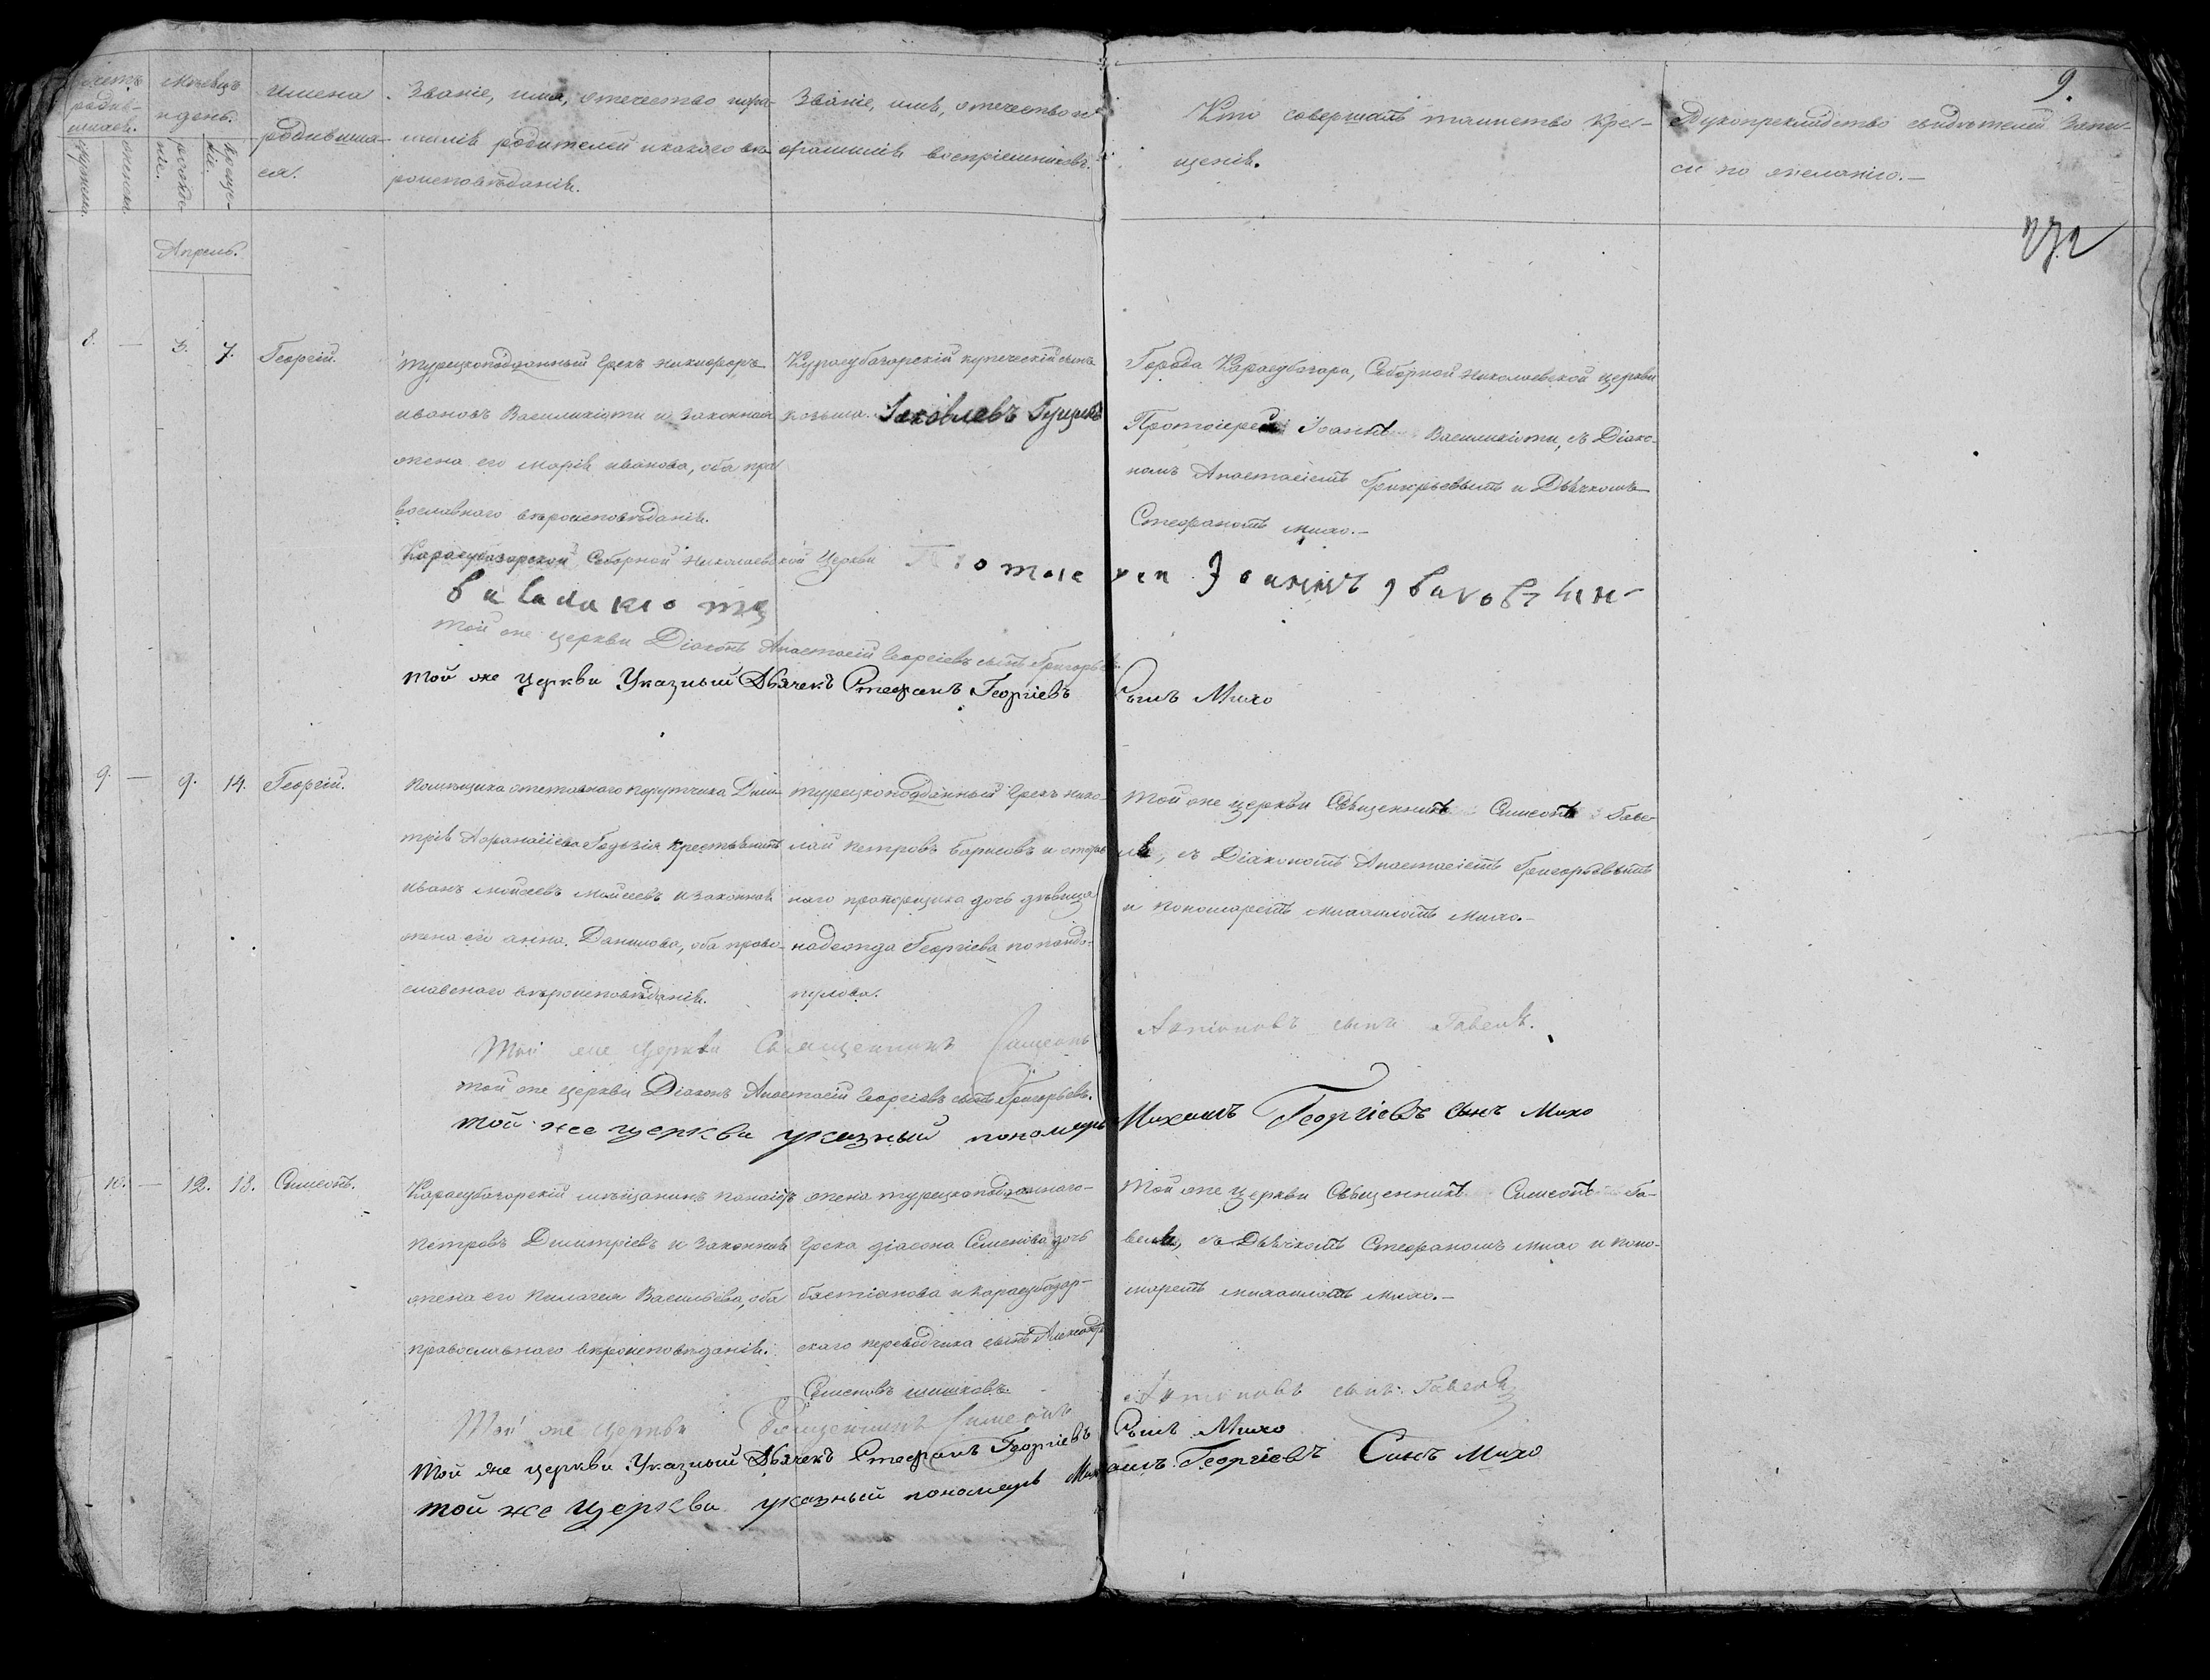 9.
272
Счетъ родив-
шихся.
Мужеска.
Женска.
Мѣсяцъ
и день.
рожде-
нія.
Креще-
нія.
Имена
родивших-
ся.
Званіе, имя, отечество и фа-
милія родителей и какого вѣ-
роисповѣданія.
Званіе, имя, отечество и
фамилія воспріемниковъ.
Кто совершалъ таинство кре-
щенія.
Рукоприкладство свидѣтелей запи-
си по желанію.—
Апрель.
8. — 3. 7. Георгій.
Турецкоподданный Грекъ Никифоръ
Ивановъ Василикіоти и законная
жена его Марія Иванова, оба пра-
вославнаго вѣроисповѣданія.
Карасубазарскій купеческій сынъ
Козьма Яковлевъ
Города Карасубазара, Соборной Николаевской церкви
Протоіерей Іоаннъ Василикіоти, съ Діако-
номъ Анастасіемъ Григорьевымъ и Дьячкомъ
Стефаномъ Михо.—
Карасубазарской Соборной Николаевской Церкви Протоіерей Іоаннъ Ивановъ сын
Василикіоти
Той же церкви Діаконъ Анастасій Георгіевъ сынъ Григорьевъ.
той же церкви Указный Дьячекъ Стефанъ Георгіевъ Сынъ Михо
9. — 9. 14. Георгій.
Помѣщика отставного порутчика Дми-
трія Афанасіева крестьянинъ
Иванъ Мойсеевъ Мойсеевъ и законная
жена его Анна Данилова, оба право-
славнаго вѣроисповѣданія.
Турецкоподданный Грекъ Нико-
лай Петровъ Борисовъ и отстав-
наго прапорщика дочь дѣвица
Надежда Георгіева Попандо-
пулова.
Той же церкви Священникъ Симеонъ Гаве-
ля, съ Діакономъ Анастасіемъ Григорьевымъ
и пономаремъ Михаиломъ Михо.—
Той же Церкви Священникъ Симеонъ Антоновъ сынъ Гавеля.
Той же церкви Діаконъ Анастасій Георгіевъ сынъ Григорьевъ.
Той же церкви указный пономарь Михаилъ Георгіевъ сынъ Михо
10. — 12. 13. Симеонъ.
Карасубазарскій мѣщанинъ Панаіотъ
Петровъ Димитріевъ и законная
жена его Пилагея Васильева, оба
православнаго вѣроисповѣданія.
жена турецкоподданнаго
Грека Діасона Семенова дочь
Бастіанова и Карасубазар-
скаго переводчика сынъ Александръ
Семеновъ Шишковъ.
Той же церкви Священникъ Симеонъ Га-
веля, съ Дьячкомъ Стефаномъ Михо и поно-
маремъ Михаиломъ Михо.—
Той же Церкви Священникъ Симеонъ Антоновъ сынъ Гавеля
Той же церкви Указный Дьячекъ Стефанъ Георгіевъ Сынъ Михо
той же Церкви указный пономарь Михаилъ Георгіевъ Синъ Михо